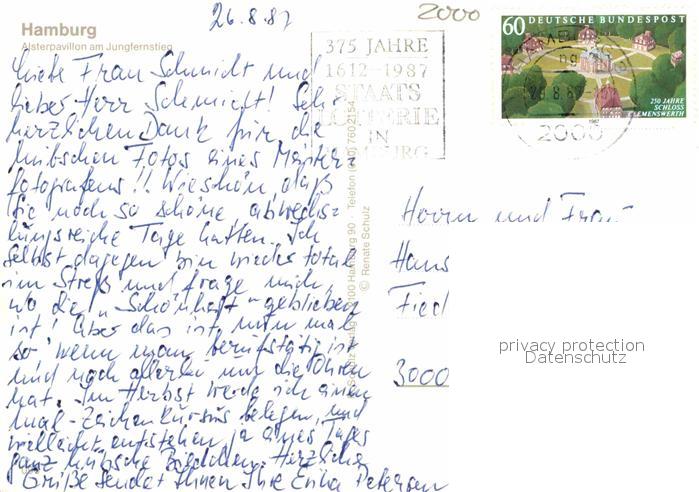 26.8.87
2000
Hamburg
Alsterpavillon am Jungfernstieg
Liebe Frau Schmidt und
lieber Herr Schmidt! Sehr
herzlichen Dank für die
hübschen Fotos eines Meister-
fotografens!! Wie schön, daß
Sie noch so schöne, abwechs-
lungsreiche Tage hatten. Ich
selbst dagegen bin wieder total
im Streß und frage mich,
wo die "Schönheit" geblieben
ist! Aber das ist nun mal
so, wenn man berufstätig ist
und noch allerlei um die Ohren
hat. Im Herbst werde ich einen
Mal-Zeichenkursus belegen, und
vielleicht entstehen ja eines Tages
ganz hübsche Bildchen. Herzliche
Grüße sendet Ihnen Ihre Erika Petersen
375 JAHRE
1612-1987
STAATS
LOTTERIE
IN
HAMBURG
2000
60 DEUTSCHE BUNDESPOST
250 JAHRE
SCHLOSS
CLEMENSWERTH
1987
Hamburg 90 · Telefon
© Renate Schulz
Herrn und Frau
Hans
Fied
3000
privacy protection
Datenschutz